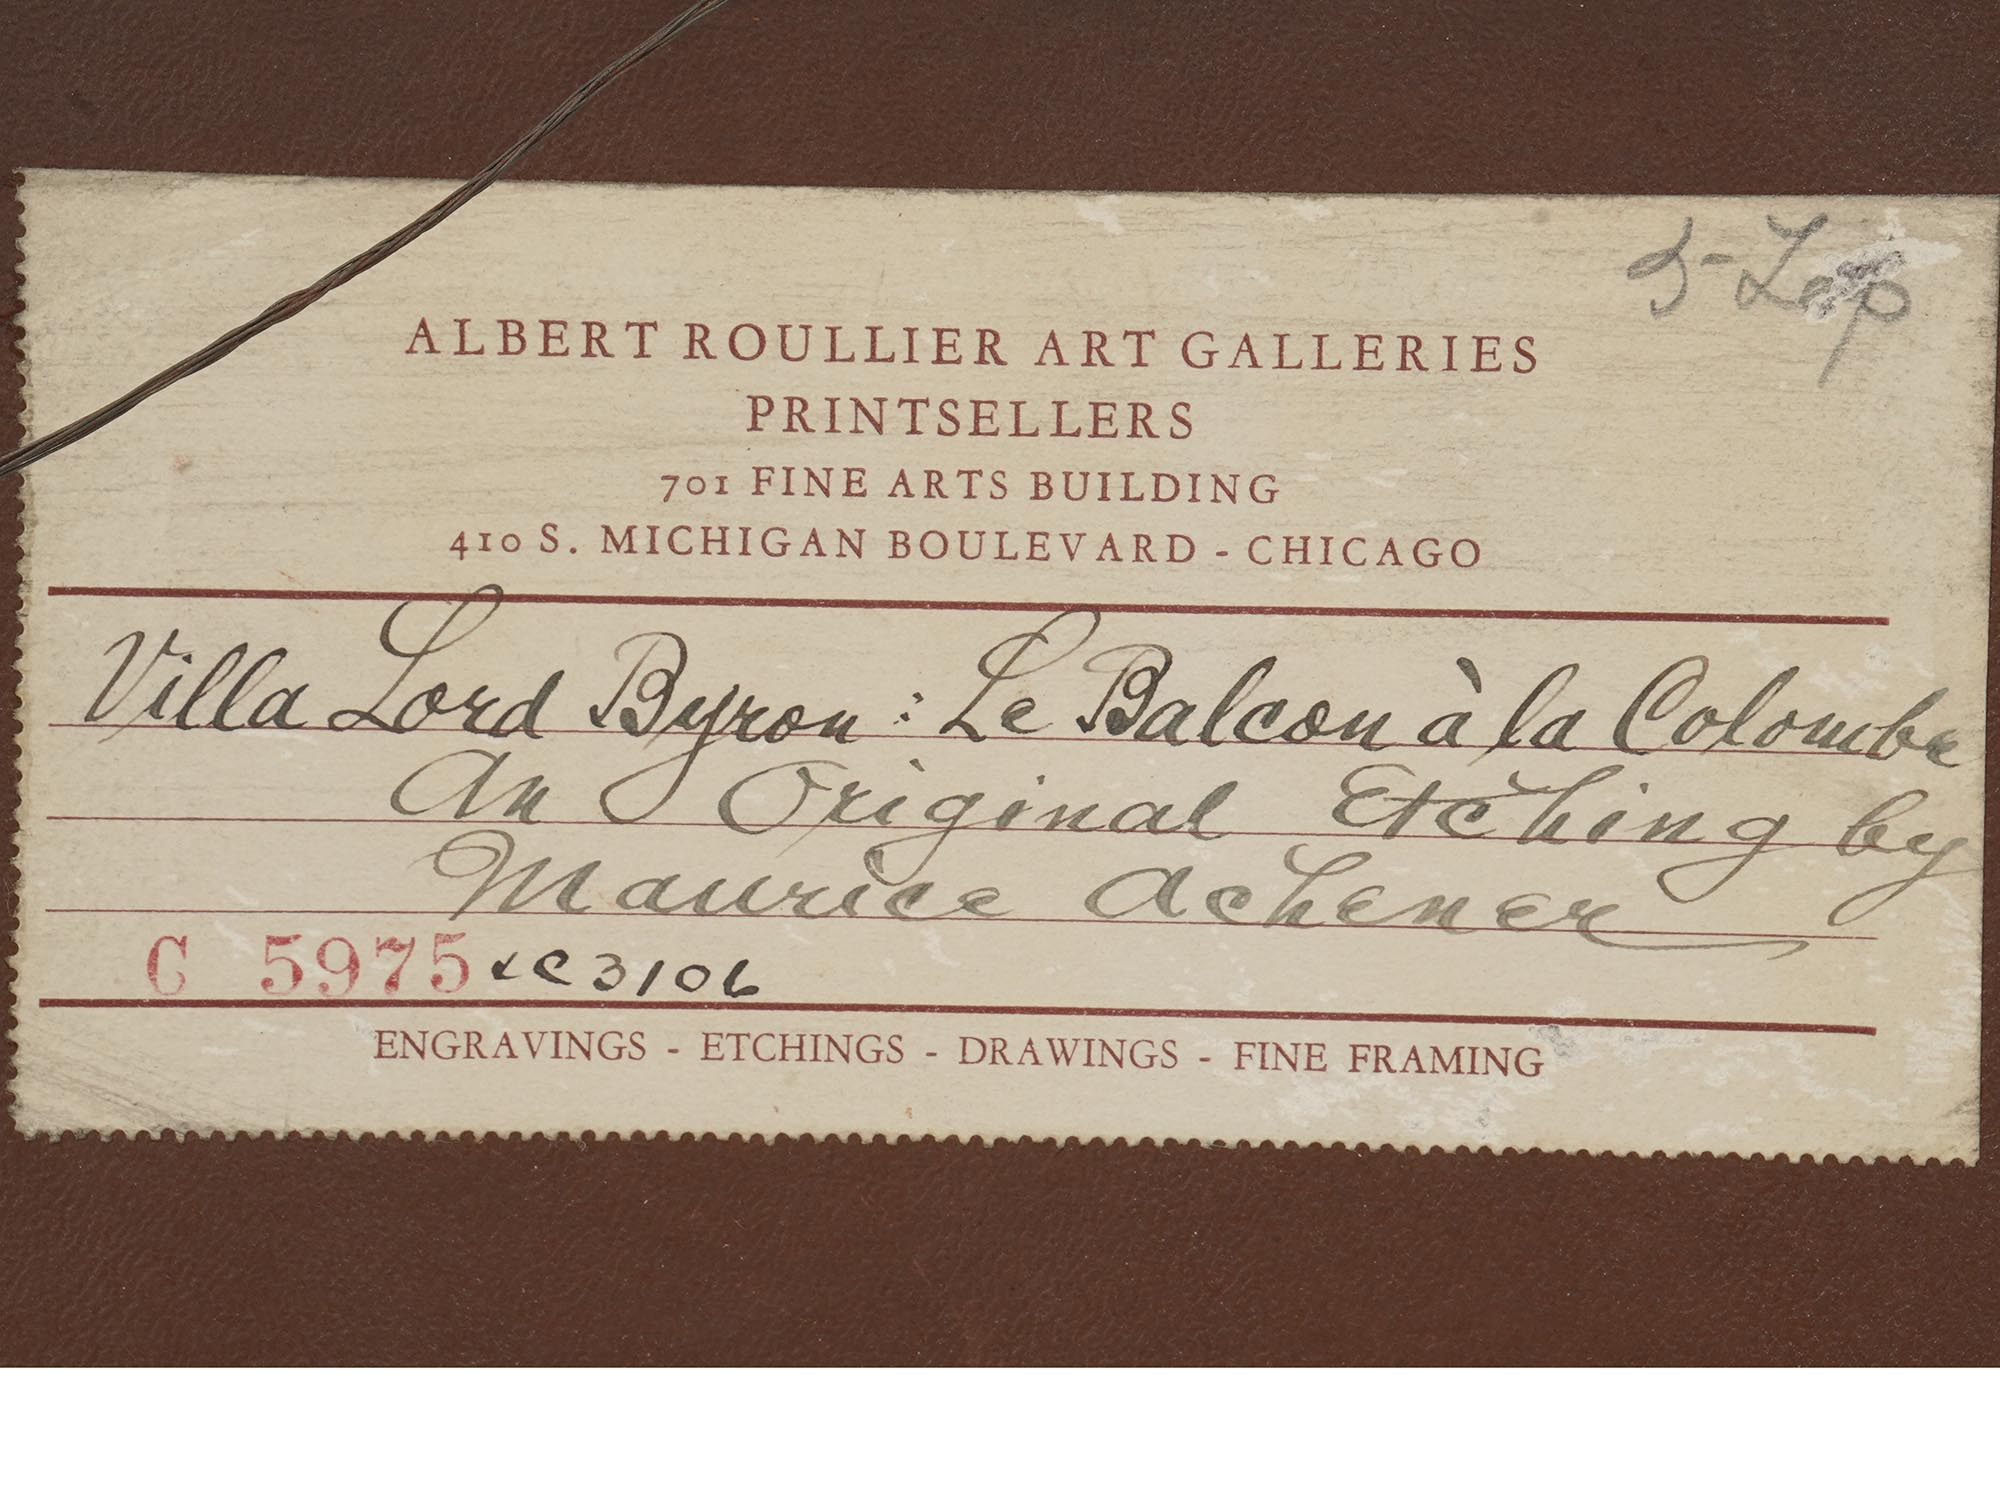 ALBERT ROULLIER ART GALLERIES
PRINTSELLERS
701 FINE ARTS BUILDING
410 S. MICHIGAN BOULEVARD - CHICAGO
Villa Lord Byron : Le Balcon à la Colombe
An Original Etching by
Maurice Achener
C 5975 & C 3106
ENGRAVINGS - ETCHINGS - DRAWINGS - FINE FRAMING